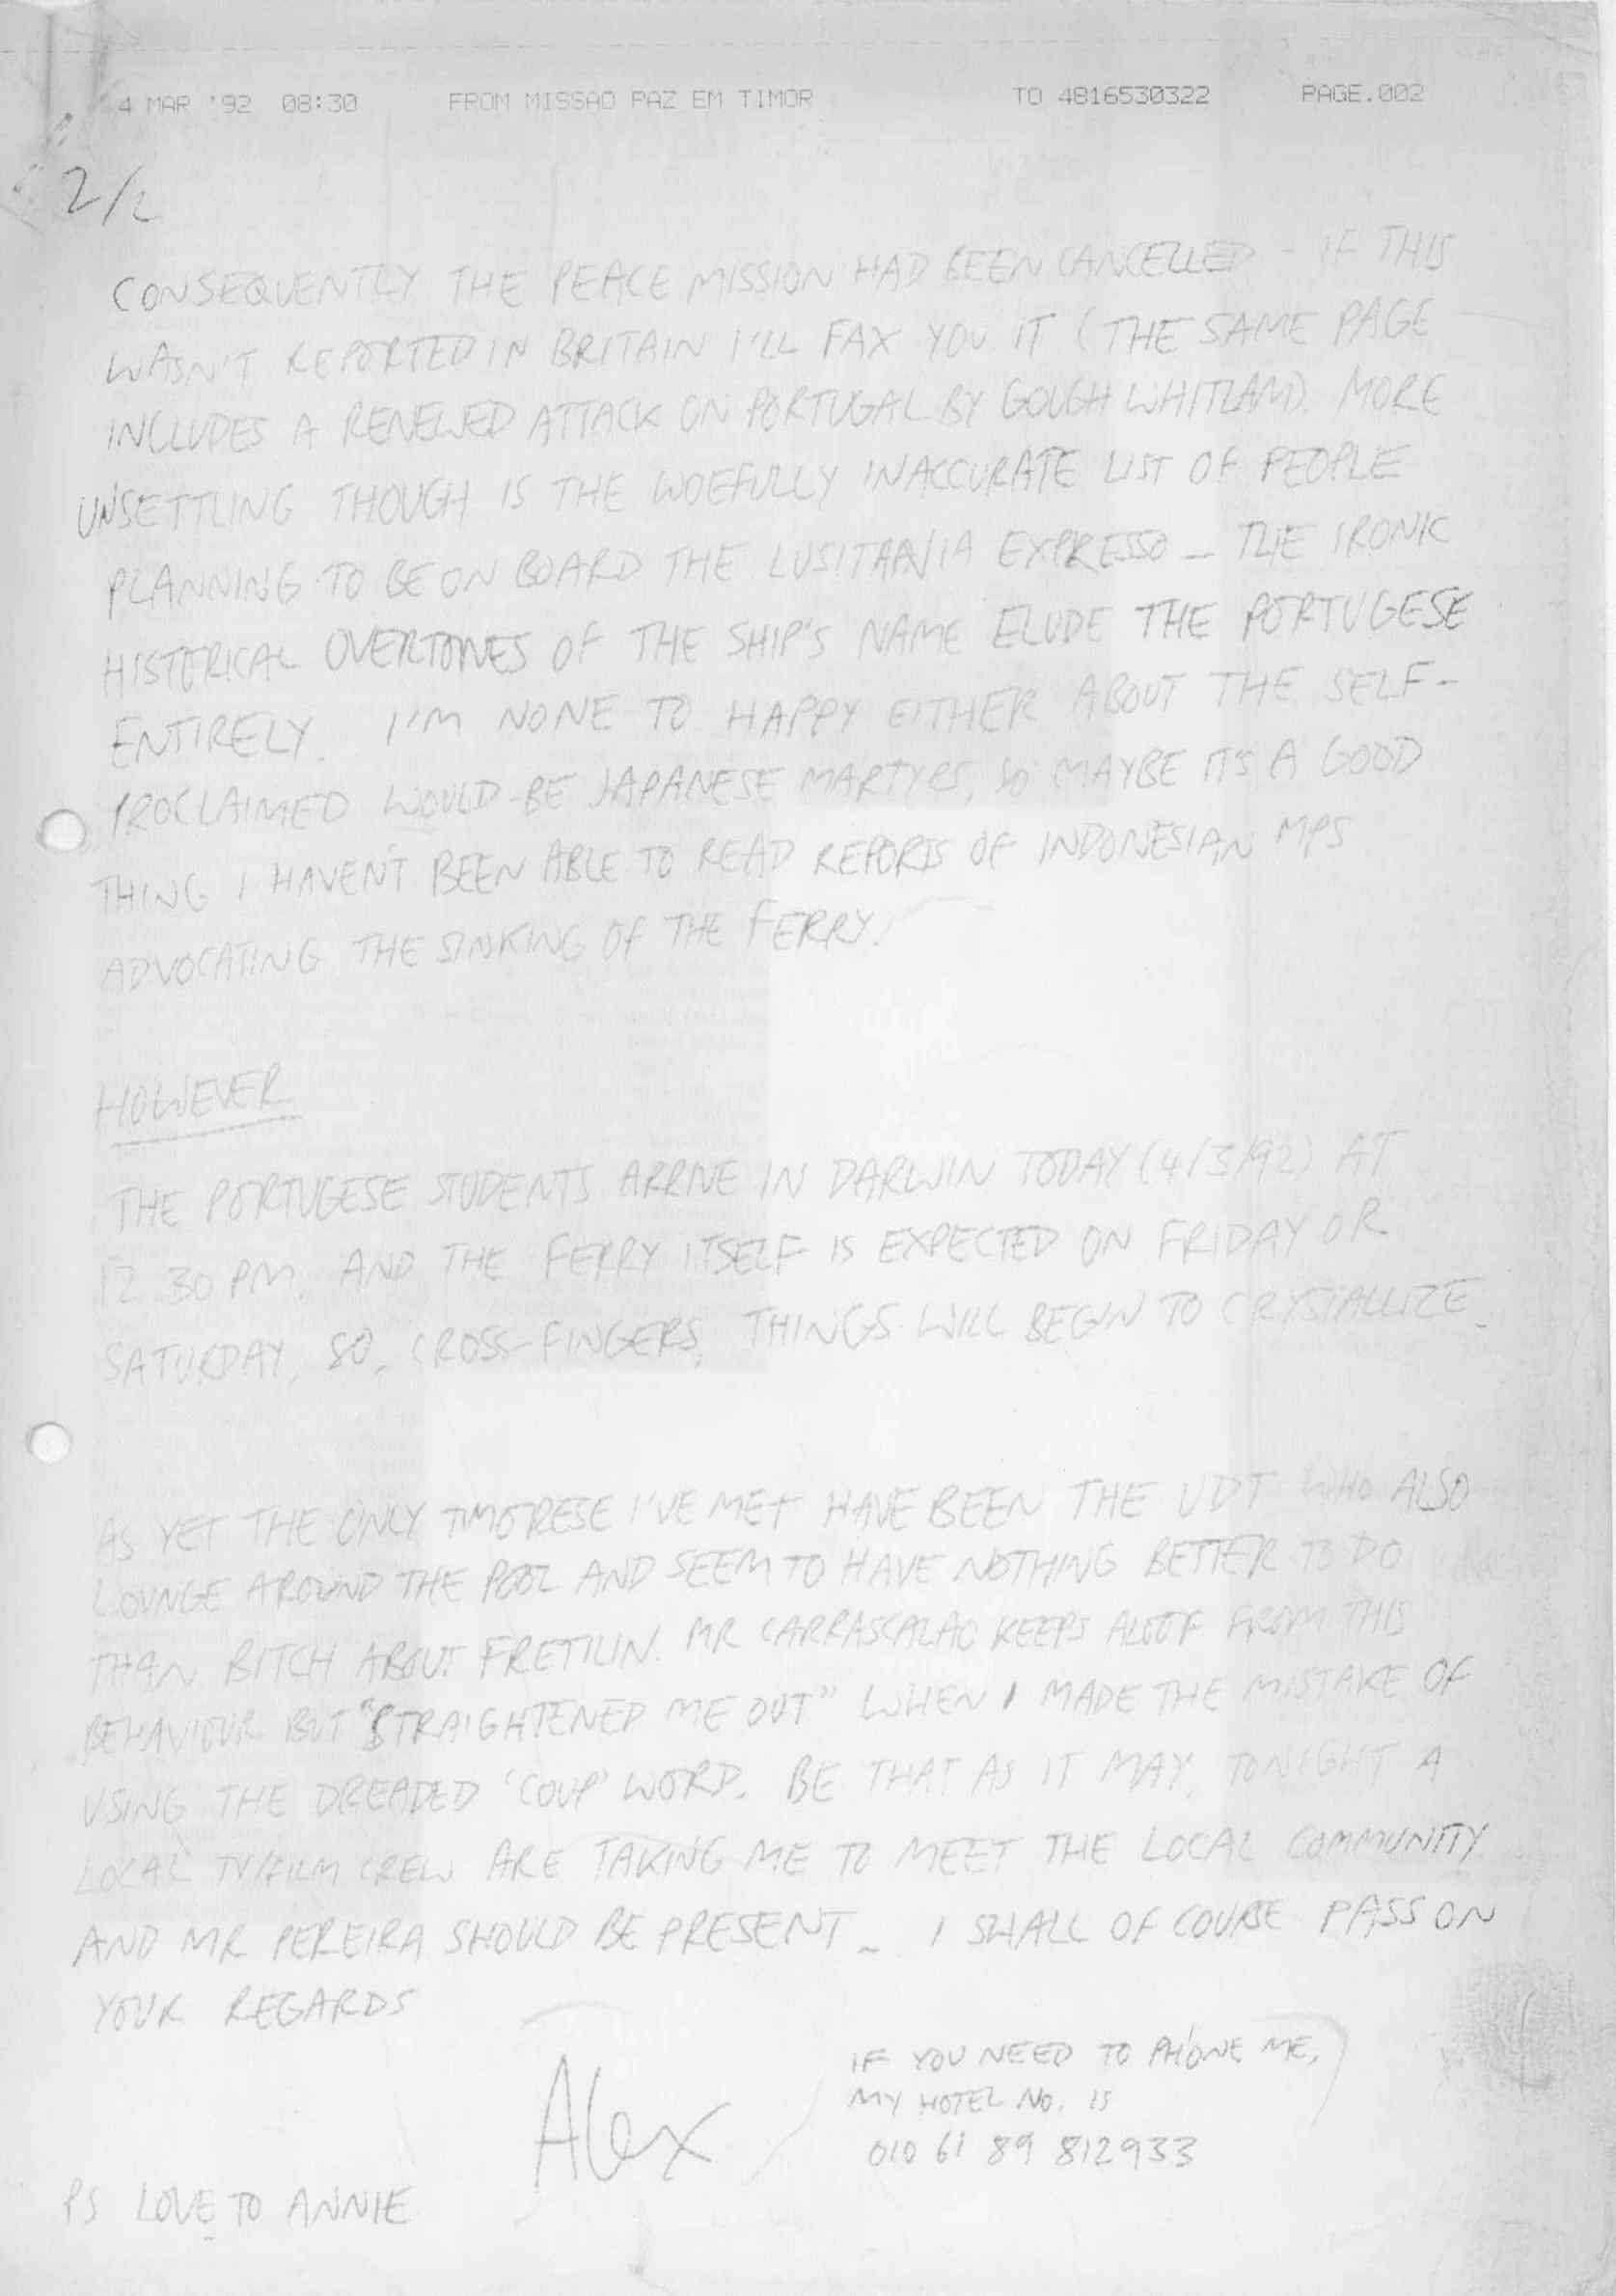 4 MAR '92 08:30 FROM MISSAO PAZ EM TIMOR TO 4816530322 PAGE.002
2/2
CONSEQUENTLY THE PEACE MISSION HAD BEEN CANCELLED - IF THIS
WASN'T REPORTED IN BRITAIN I'LL FAX YOU IT (THE SAME PAGE
INCLUDES A RENEWED ATTACK ON PORTUGAL BY GOUGH WHITLAM). MORE
UNSETTLING THOUGH IS THE WOEFULLY INACCURATE LIST OF PEOPLE
PLANNING TO BE ON BOARD THE LUSITANIA EXPRESSO - THE IRONIC
HISTORICAL OVERTONES OF THE SHIP'S NAME ELUDE THE PORTUGESE
ENTIRELY. I'M NONE TO HAPPY EITHER ABOUT THE SELF-
PROCLAIMED WOULD-BE JAPANESE MARTYRS, SO MAYBE IT'S A GOOD
THING I HAVEN'T BEEN ABLE TO READ REPORTS OF INDONESIAN MPS
ADVOCATING THE SINKING OF THE FERRY.
HOWEVER
THE PORTUGESE STUDENTS ARRIVE IN DARWIN TODAY (4/3/92) AT
12.30 PM. AND THE FERRY ITSELF IS EXPECTED ON FRIDAY OR
SATURDAY, SO, CROSS-FINGERS, THINGS WILL BEGIN TO CRYSTALLIZE.
AS YET THE ONLY TIMORESE I'VE MET HAVE BEEN THE UDT WHO ALSO
LOUNGE AROUND THE POOL AND SEEM TO HAVE NOTHING BETTER TO DO
THAN BITCH ABOUT FRETILIN. MR CARRASCALAO KEEPS ALOOF FROM THIS
BEHAVIOUR BUT "STRAIGHTENED ME OUT" WHEN I MADE THE MISTAKE OF
USING THE DREADED 'COUP' WORD. BE THAT AS IT MAY, TONIGHT A
LOCAL TV/FILM CREW ARE TAKING ME TO MEET THE LOCAL COMMUNITY
AND MR PEREIRA SHOULD BE PRESENT - I SHALL OF COURSE PASS ON
YOUR REGARDS
Alex
IF YOU NEED TO PHONE ME,
MY HOTEL NO. IS
010 61 89 812933
PS LOVE TO ANNIE